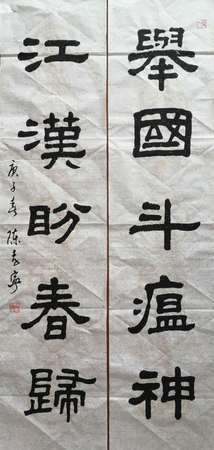 舉國斗瘟神
江漢盼春歸
庚子春 陈志寧